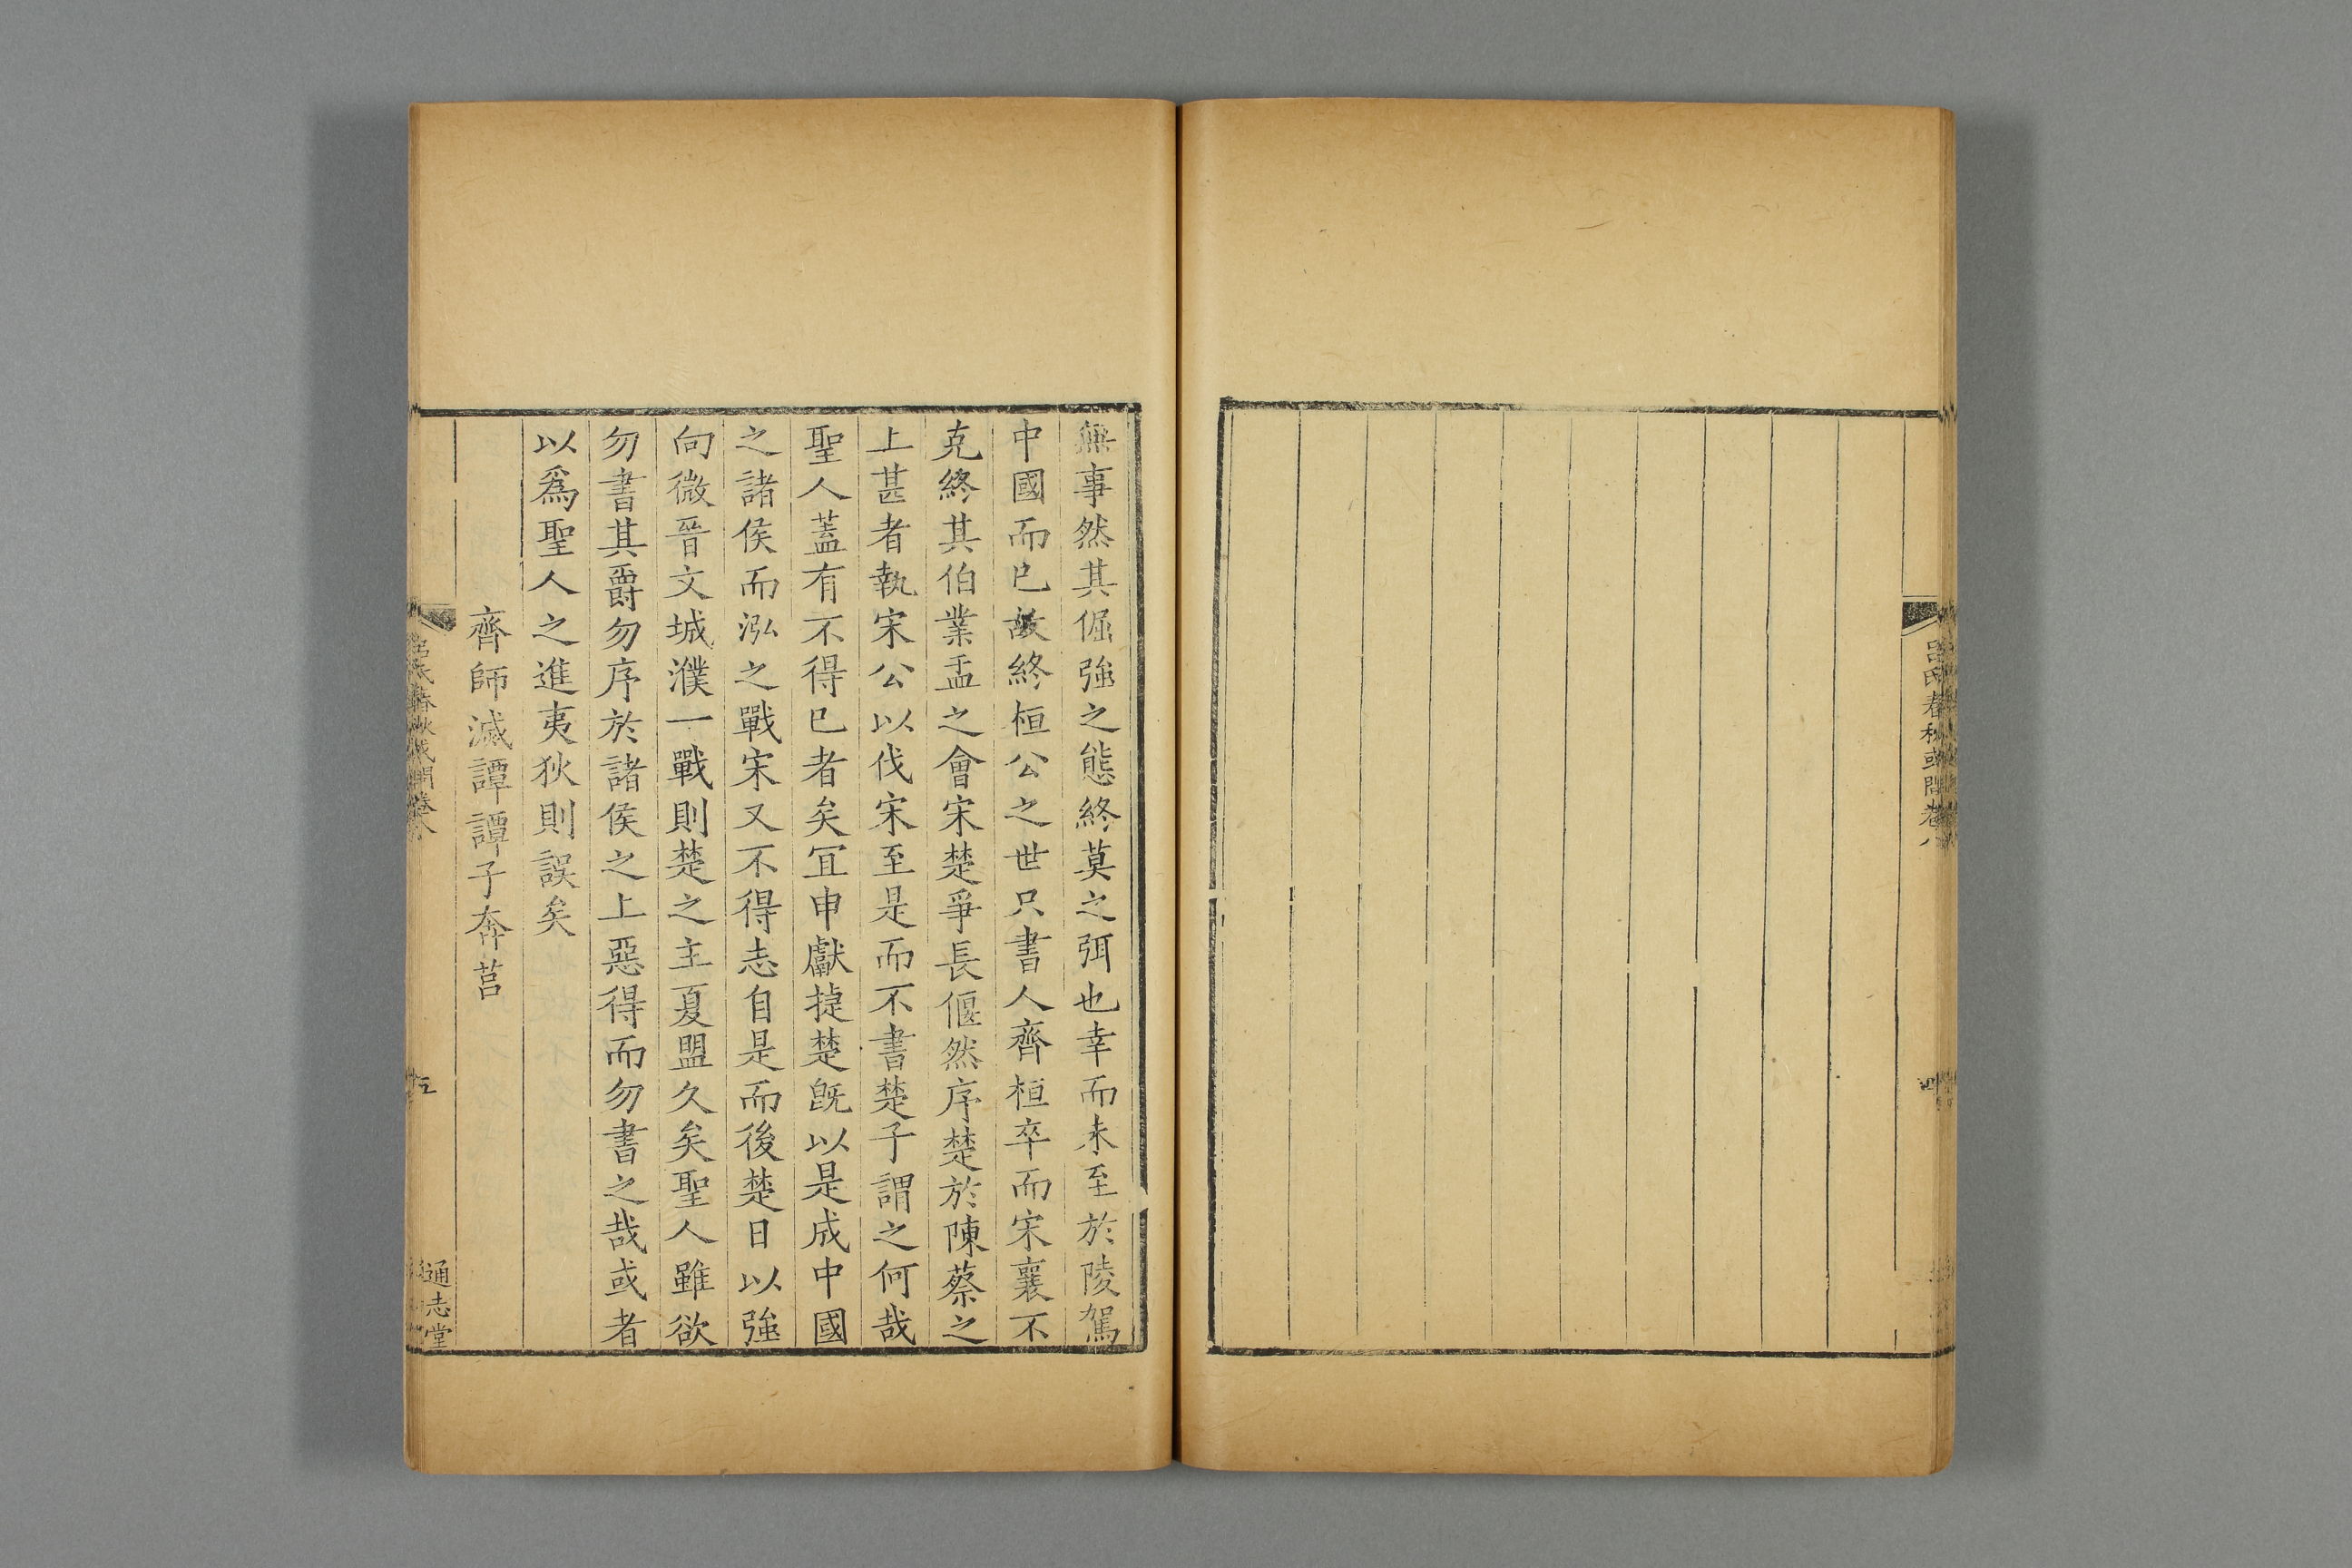 呂氏春秋或問卷八
無事然其倔強之態終莫之弭也幸而未至於陵駕
中國而已故終桓公之世只書人齊桓卒而宋襄不
克終其伯業盂之會宋楚爭長偃然序楚於陳蔡之
上甚者執宋公以伐宋至是而不書楚子謂之何哉
聖人蓋有不得已者矣宜申獻捷楚旣以是成中國
之諸侯而泓之戰宋又不得志自是而後楚日以強
向微晉文城濮一戰則楚之主夏盟久矣聖人雖欲
勿書其爵勿序於諸侯之上惡得而勿書之哉或者
以爲聖人之進夷狄則誤矣
齊師滅譚譚子奔莒
呂氏春秋或問卷八
通志堂